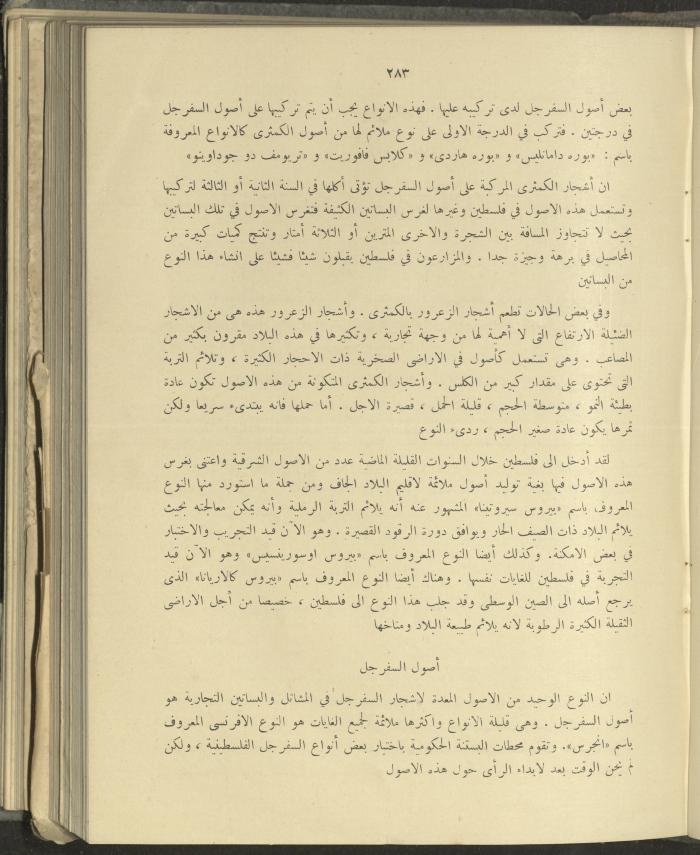 ٢٨٣
بعض أصول السفرجل لدى تركيبه عليها . فهذه الانواع يجب أن يتم تركيبها على أصول السفرجل
في درجتين . فتركب في الدرجة الاولى على نوع ملائم لها من أصول الكمثرى كالانواع المعروفة
باسم : «بوره دامانليس» و «بوره هاردى» و «كلابس فافوريت» و «تريومف دو جودوينو»
ان أشجار الكمثرى المركبة على أصول السفرجل تؤتى أكلها في السنة الثانية أو الثالثة لتركيبها
وتستعمل هذه الاصول في فلسطين وغيرها لغرس البساتين الكثيفة فتغرس الاصول في تلك البساتين
بحيث لا تتجاوز المسافة بين الشجرة والاخرى المترين أو الثلاثة أمتار وتنتج كميات كبيرة من
المحاصيل في برهة وجيزة جدا . والمزارعون في فلسطين يقبلون شيئا فشيئا على انشاء هذا النوع
من البساتين
وفي بعض الحالات تطعم أشجار الزعرور بالكمثرى . وأشجار الزعرور هذه هى من الاشجار
الضئيلة الارتفاع التى لا أهمية لها من وجهة تجارية ، وتكثيرها في هذه البلاد مقرون بكثير من
المصاعب . وهى تستعمل كأصول في الاراضى الصخرية ذات الاحجار الكثيرة ، وتلائم التربة
التى تحتوى على مقدار كبير من الكلس . وأشجار الكمثرى المتكونة من هذه الاصول تكون عادة
بطيئة النمو ، متوسطة الحجم ، قليلة الحمل ، قصيرة الاجل . أما حملها فانه يبتدىء سريعا ولكن
ثمرها يكون عادة صغير الحجم ، ردىء النوع
لقد أدخل الى فلسطين خلال السنوات القليلة الماضية عدد من الاصول الشرقية واعتنى بغرس
هذه الاصول فيها بغية توليد أصول ملائمة لاقليم البلاد الجاف ومن جملة ما استورد منها النوع
المعروف باسم «بيروس سيروتينا» المشهور عنه أنه يلائم التربة الرملية وأنه يمكن معالجته بحيث
يلائم البلاد ذات الصيف الحار ويوافق دورة الرقود القصيرة . وهو الآن قيد التجريب والاختبار
في بعض الامكنة. وكذلك أيضا النوع المعروف باسم «بيروس اوسورينسيس» وهو الآن قيد
التجربة في فلسطين للغايات نفسها . وهناك أيضا النوع المعروف باسم «بيروس كالاريانا» الذى
يرجع أصله الى الصين الوسطى وقد جلب هذا النوع الى فلسطين ، خصيصا من أجل الاراضى
الثقيلة الكثيرة الرطوبة لانه يلائم طبيعة البلاد ومناخها
أصول السفرجل
ان النوع الوحيد من الاصول المعدة لاشجار السفرجل في المشاتل والبساتين التجارية هو
أصول السفرجل . وهى قليلة الانواع واكثرها ملائمة لجميع الغايات هو النوع الافرنسى المعروف
باسم «انجرس». وتقوم محطات البستنة الحكومية باختبار بعض أنواع السفرجل الفلسطينية ، ولكن
لم يحن الوقت بعد لابداء الرأى حول هذه الاصول